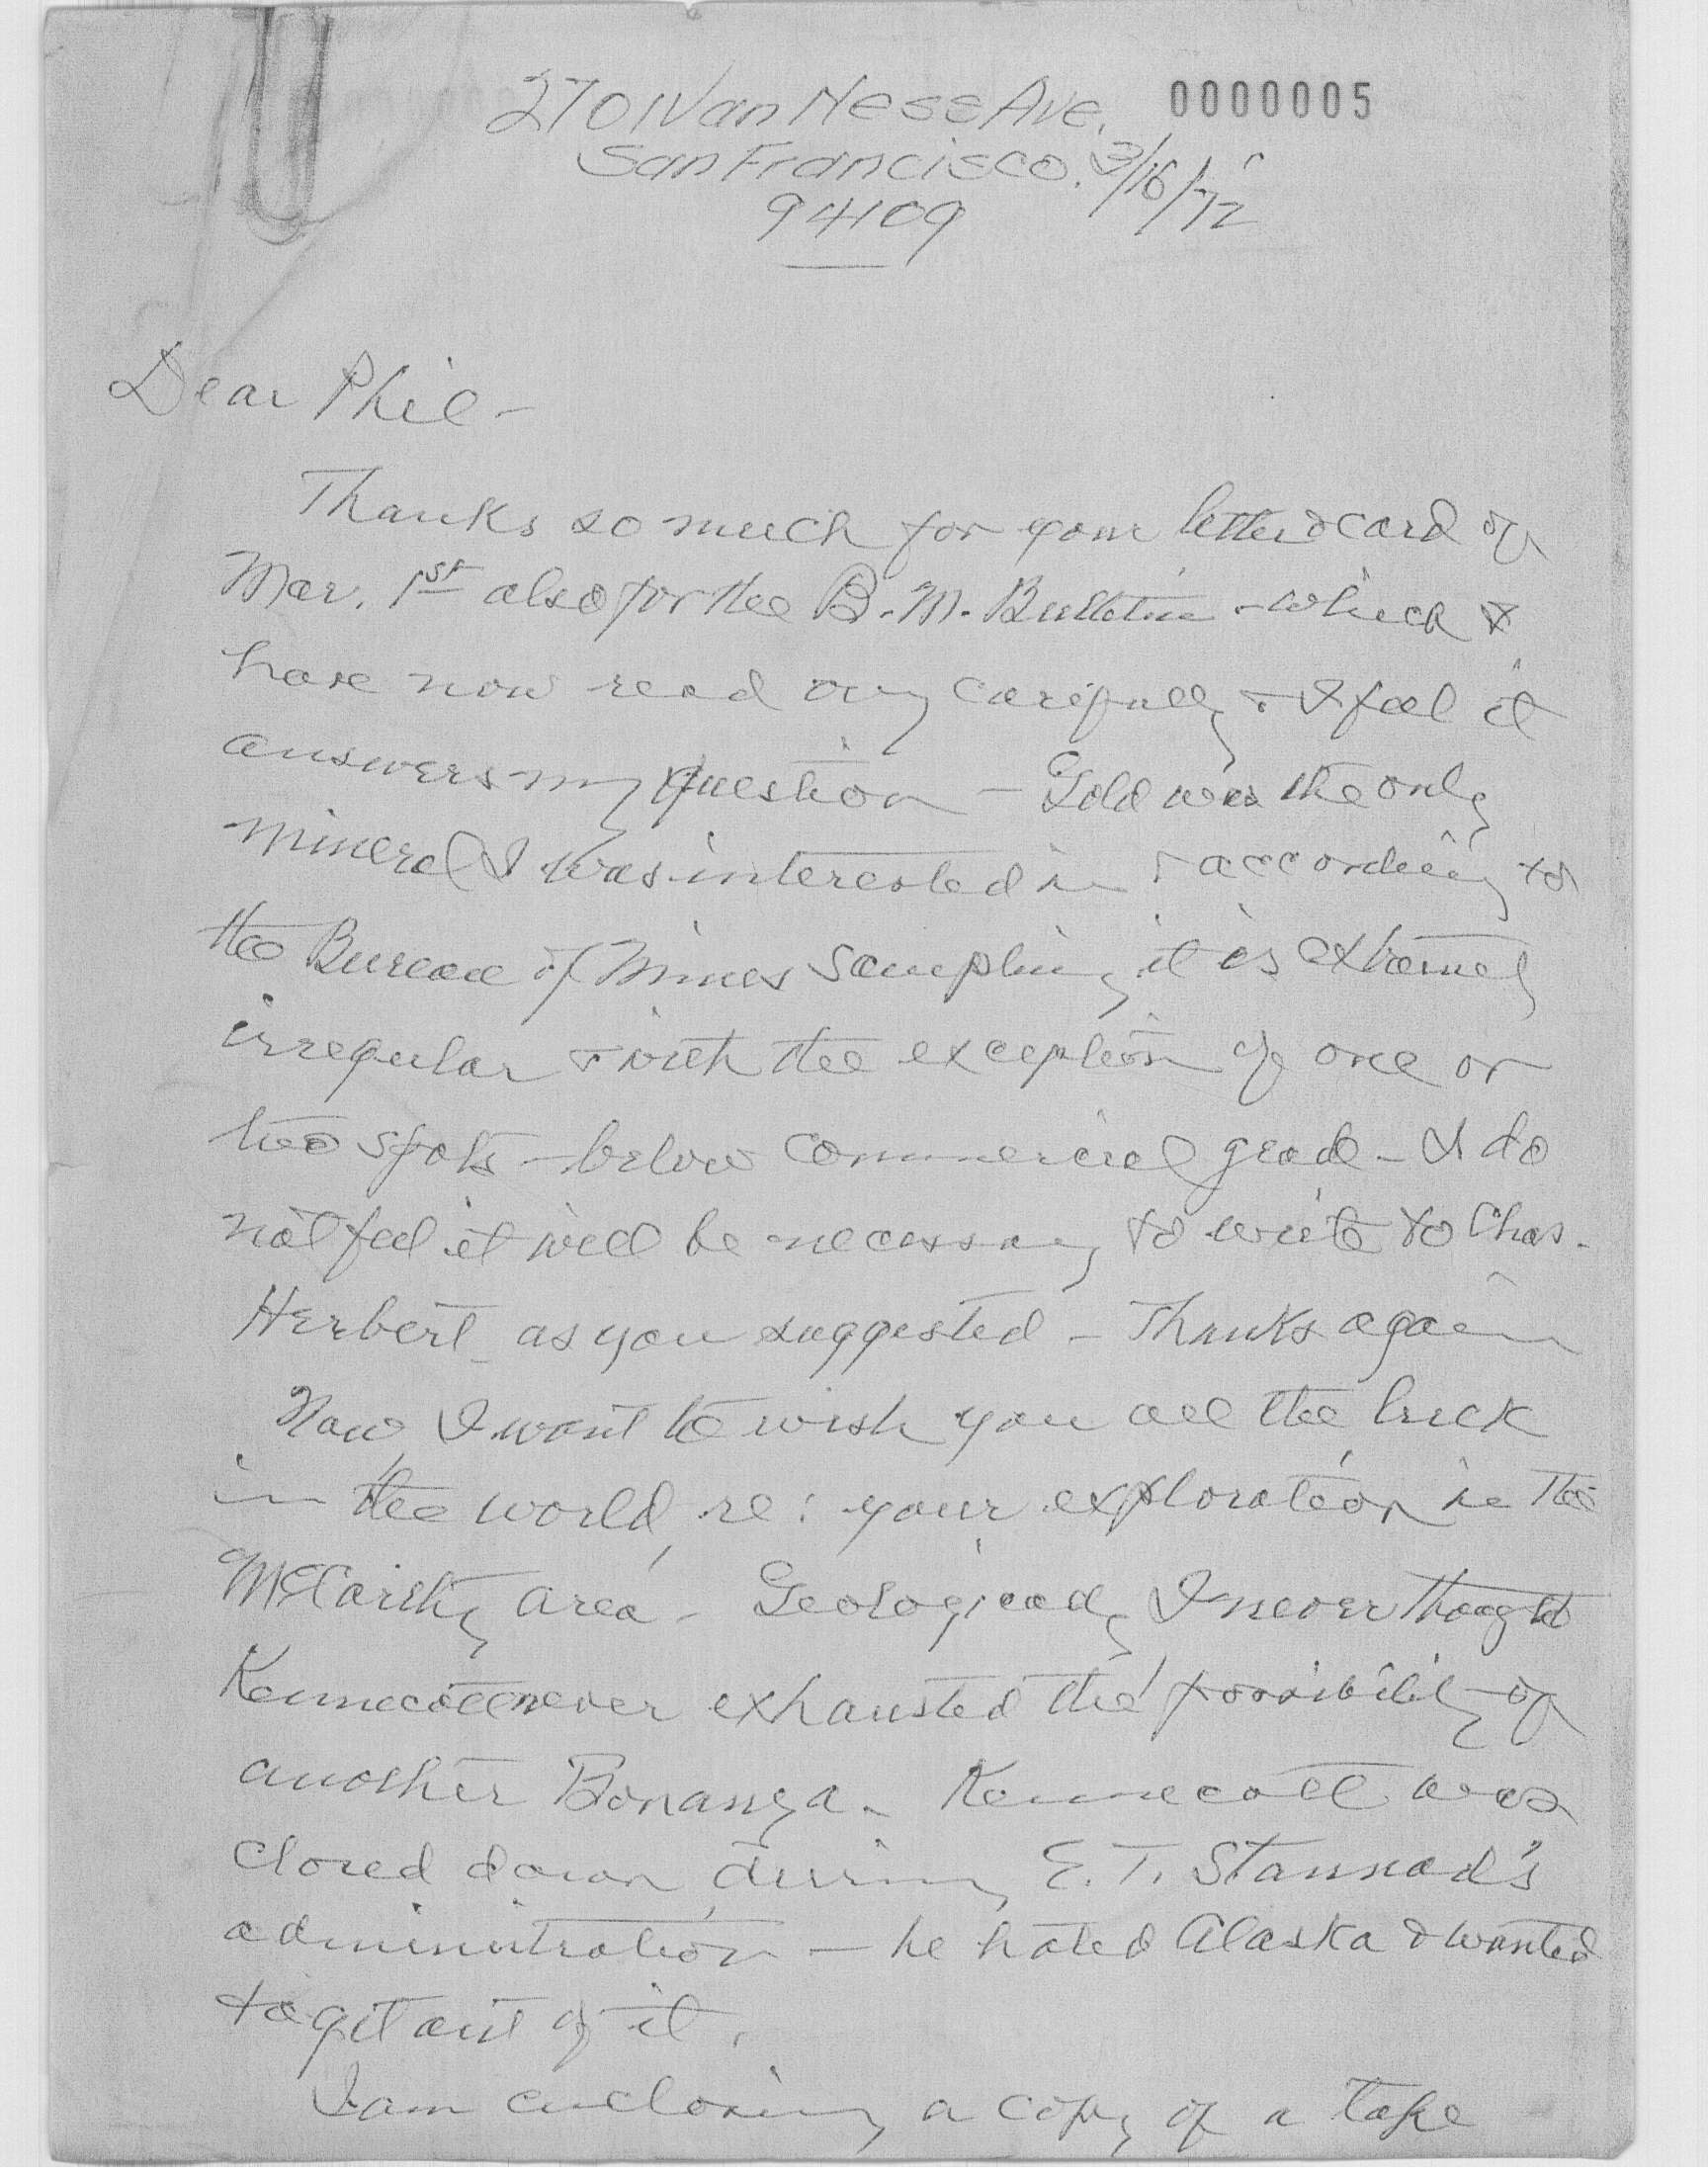 2701 Van Ness Ave. 0000005
San Francisco. 3/16/72
94109
Dear Phil -
Thanks so much for your letter & card of
Mar. 1st also for the B. M. Bulletin - which I
have now read very carefully & I feel it
answers my question - Gold was the only
mineral I was interested in & according to
the Bureau of Mines sampling it is extremely
irregular & with the exception of one or
two spots - below commercial grade - I do
not feel it will be necessary to write to Chas.
Herbert as you suggested - Thanks again
Now, I want to wish you all the luck
in the world, re: your exploration in the
McCarthy area - Geologically I never thought
Kennecott never exhausted the possibility of
another Bonanza - Kennecott was
closed down during E. T. Stannard's
administration - he hated Alaska & wanted
to get out of it.
I am enclosing a copy of a tape